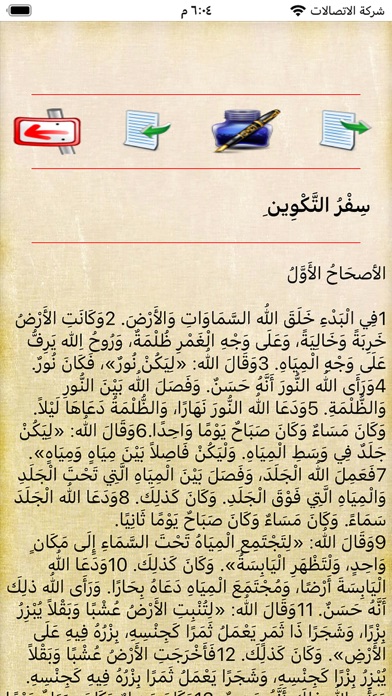 شركة الاتصالات ٦:٠٤ م
سِفْرُ التَّكْوِينِ
الأصحَاحُ الأَوَّلُ
1فِي الْبَدْءِ خَلَقَ اللهُ السَّمَاوَاتِ وَالأَرْضَ. 2وَكَانَتِ الأَرْضُ
خَرِبَةً وَخَالِيَةً، وَعَلَى وَجْهِ الْغَمْرِ ظُلْمَةٌ، وَرُوحُ اللهِ يَرِفُّ
عَلَى وَجْهِ الْمِيَاهِ. 3وَقَالَ اللهُ: «لِيَكُنْ نُورٌ»، فَكَانَ نُورٌ.
4وَرَأَى اللهُ النُّورَ أَنَّهُ حَسَنٌ. وَفَصَلَ اللهُ بَيْنَ النُّورِ
وَالظُّلْمَةِ. 5وَدَعَا اللهُ النُّورَ نَهَارًا، وَالظُّلْمَةُ دَعَاهَا لَيْلاً.
وَكَانَ مَسَاءٌ وَكَانَ صَبَاحٌ يَوْمًا وَاحِدًا. 6وَقَالَ اللهُ: «لِيَكُنْ
جَلَدٌ فِي وَسَطِ الْمِيَاهِ. وَلْيَكُنْ فَاصِلاً بَيْنَ مِيَاهٍ وَمِيَاهٍ».
7فَعَمِلَ اللهُ الْجَلَدَ، وَفَصَلَ بَيْنَ الْمِيَاهِ الَّتِي تَحْتَ الْجَلَدِ
وَالْمِيَاهِ الَّتِي فَوْقَ الْجَلَدِ. وَكَانَ كَذلِكَ. 8وَدَعَا اللهُ الْجَلَدَ
سَمَاءً. وَكَانَ مَسَاءٌ وَكَانَ صَبَاحٌ يَوْمًا ثَانِيًا.
9وَقَالَ اللهُ: «لِتَجْتَمِعِ الْمِيَاهُ تَحْتَ السَّمَاءِ إِلَى مَكَانٍ
وَاحِدٍ، وَلْتَظْهَرِ الْيَابِسَةُ». وَكَانَ كَذلِكَ. 10وَدَعَا اللهُ
الْيَابِسَةَ أَرْضًا، وَمُجْتَمَعَ الْمِيَاهِ دَعَاهُ بِحَارًا. وَرَأَى اللهُ ذلِكَ
أَنَّهُ حَسَنٌ. 11وَقَالَ اللهُ: «لِتُنْبِتِ الأَرْضُ عُشْبًا وَبَقْلاً يُبْزِرُ
بِزْرًا، وَشَجَرًا ذَا ثَمَرٍ يَعْمَلُ ثَمَرًا كَجِنْسِهِ، بِزْرُهُ فِيهِ عَلَى
الأَرْضِ». وَكَانَ كَذلِكَ. 12فَأَخْرَجَتِ الأَرْضُ عُشْبًا وَبَقْلاً يُبْزِرُ
بِزْرًا كَجِنْسِهِ، وَشَجَرًا يَعْمَلُ ثَمَرًا بِزْرُهُ فِيهِ كَجِنْسِهِ.